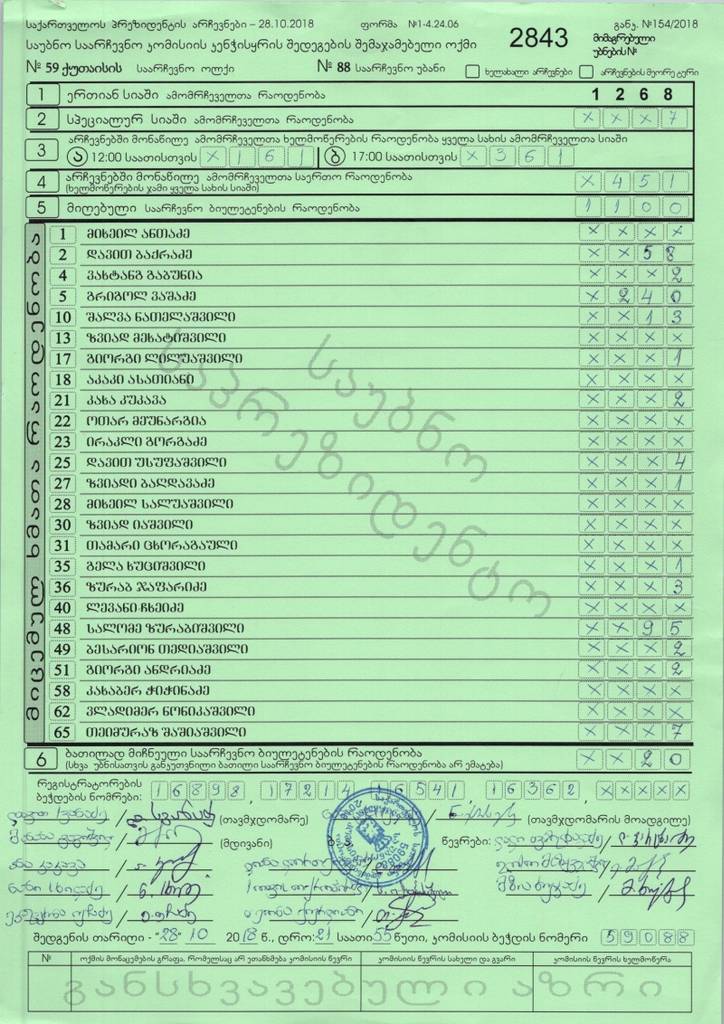 საქართველოს პრეზიდენტის არჩევნები – 28.10.2018 ფორმა №1-4.24.06 განკ. №154/2018
საუბნო საარჩევნო კომისიის კენჭისყრის შედეგების შემაჯამებელი ოქმი 2843 მიმაგრებელი უბნების№
№ 59 ქუთაისის საარჩევნო ოლქი № 88 საარჩევნო უბანი ხელახალი არჩევნები არჩევნების მეორე ტური
1 ერთიან სიაში ამომრჩეველთა რაოდენობა 1 2 6 8
2 სპეციალურ სიაში ამომრჩეველთა რაოდენობა × × × 7
3 არჩევნებში მონაწილე ამომრჩეველთა ხელმოწერების რაოდენობა ყველა სახის ამომრჩეველთა სიაში
ა 12:00 საათისთვის × 1 6 1 ბ 17:00 საათისთვის × 3 6 1
4 არჩევნებში მონაწილე ამომრჩეველთა საერთო რაოდენობა × 4 5 1
(ხელმოწერების ჯამი ყველა სახის სიაში)
5 მიღებული საარჩევნო ბიულეტენების რაოდენობა 1 1 0 0
მიცემულ ხმათა რაოდენობა
1 მიხეილ ანთაძე × × × ×
2 დავით ბაქრაძე × × 5 8
4 ვახტანგ გაბუნია × × × 2
5 გრიგოლ ვაშაძე × 2 4 0
10 შალვა ნათელაშვილი × × 1 3
13 ზვიად მეხატიშვილი × × × ×
17 გიორგი ლილუაშვილი × × × 1
18 აკაკი ასათიანი × × × ×
21 კახა კუკავა × × × 2
22 ოთარ მეუნარგია × × × ×
23 ირაკლი გორგაძე × × × ×
25 დავით უსუფაშვილი × × × 4
27 ზვიადი ბაღდავაძე × × × 1
28 მიხეილ სალუაშვილი × × × ×
30 ზვიად იაშვილი × × × ×
31 თამარი ცხორაგაული × × × ×
35 გელა ხუციშვილი × × × 1
36 ზურაბ ჯაფარიძე × × × 3
40 ლევანი ჩხეიძე × × × ×
48 სალომე ზურაბიშვილი × × 9 5
49 ბესარიონ თედიაშვილი × × × 2
51 გიორგი ანდრიაძე × × × 2
58 კახაბერ ჭიჭინაძე × × × ×
62 ვლადიმერ ნონიკაშვილი × × × ×
65 თეიმურაზ შაშიაშვილი × × × 7
საუბნო
საპრეზიდენტო
6 ბათილად მიჩნეული საარჩევნო ბიულეტენების რაოდენობა × × 2 0
(სხვა უბნისათვის განკუთვნილი ბათილი საარჩევნო ბიულეტენების რაოდენობა არ ემატება)
რეგისტრატორების
ბეჭდების ნომრები: 16898, 17214 16541 16362, ×××××
(თავმჯდომარე) (თავმჯდომარის მოადგილე)
(მდივანი) წევრები:
შედგენის თარიღი - 28-10 2018 წ., დრო: 21 საათი 55 წუთი, კომისიის ბეჭდის ნომერი 59088
№ ოქმის მონაცემების გრაფა, რომელსაც არ ეთანხმება კომისიის წევრი კომისიის წევრის სახელი და გვარი კომისიის წევრის ხელმოწერა
განსხვავებული აზრი